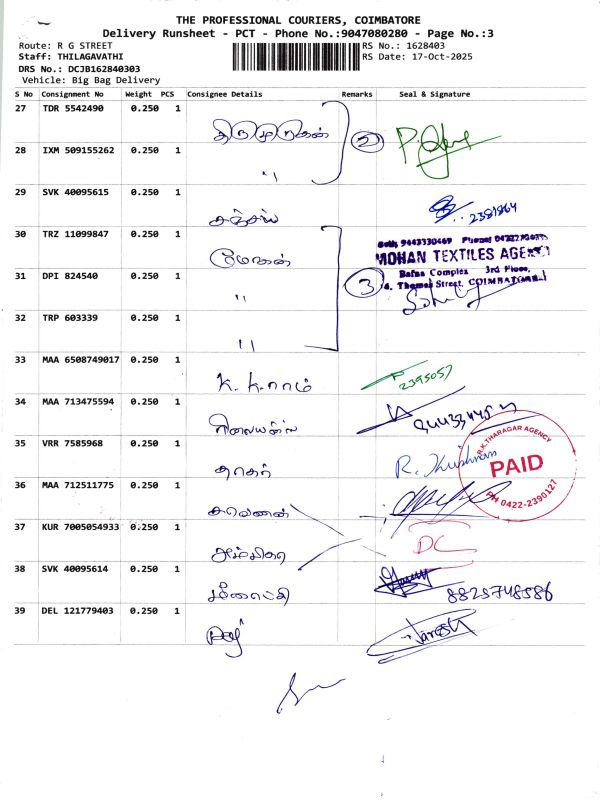 THE PROFESSIONAL COURIERS, COIMBATORE
Delivery Runsheet - PCT - Phone No.:9047080280 - Page No.:3
Route: R G STREET
RS No.: 1628403
Staff: THILAGAVATHI
RS Date: 17-Oct-2025
DRS No.: DCJB162840303
Vehicle: Big Bag Delivery
S No Consignment No Weight PCS Consignee Details Remarks Seal & Signature
27 TDR 5542490 0.250 1
2
28 IXM 509155262 0.250 1
"
29 SVK 40095615 0.250 1
2381864
30 TRZ 11099847 0.250 1
மோகன்
MOHAN TEXTILES AGENCY
31 DPI 824540 0.250 1
"
3
Bafna Complex 3rd Floor,
Thomas Street, COIMBATORE-1
32 TRP 603339 0.250 1
"
33 MAA 6508749017 0.250 1
K. K. ராம்
2395057
34 MAA 713475594 0.250 1
35 VRR 7585968 0.250 1
தாகர்
R. Krishnan
R.K.THARAGAR AGENCY
PAID
PH 0422-2390127
36 MAA 712511775 0.250 1
சரவணன்
37 KUR 7005054933 0.250 1
DC
38 SVK 40095614 0.250 1
மீனாட்சி
8825748586
39 DEL 121779403 0.250 1